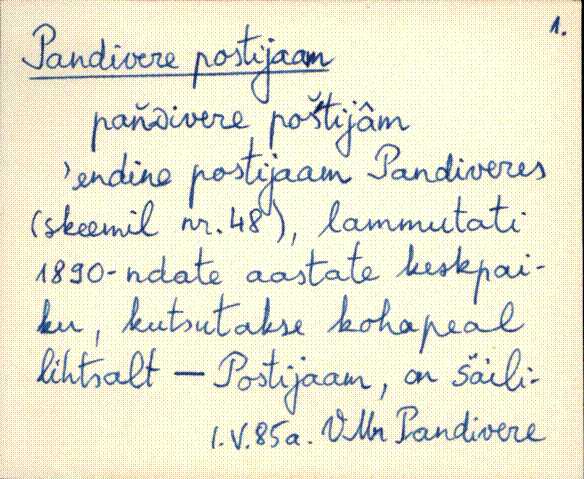 1.
Pandivere postijaam
pańdivere poštijâm
'endine postijaam Pandiveres
(skeemil nr. 48), lammutati
1890-ndate aastate keskpai-
ku, kutsutakse kohapeal
lihtsalt — Postijaam, on säili-
1.V.85a. VMr Pandivere